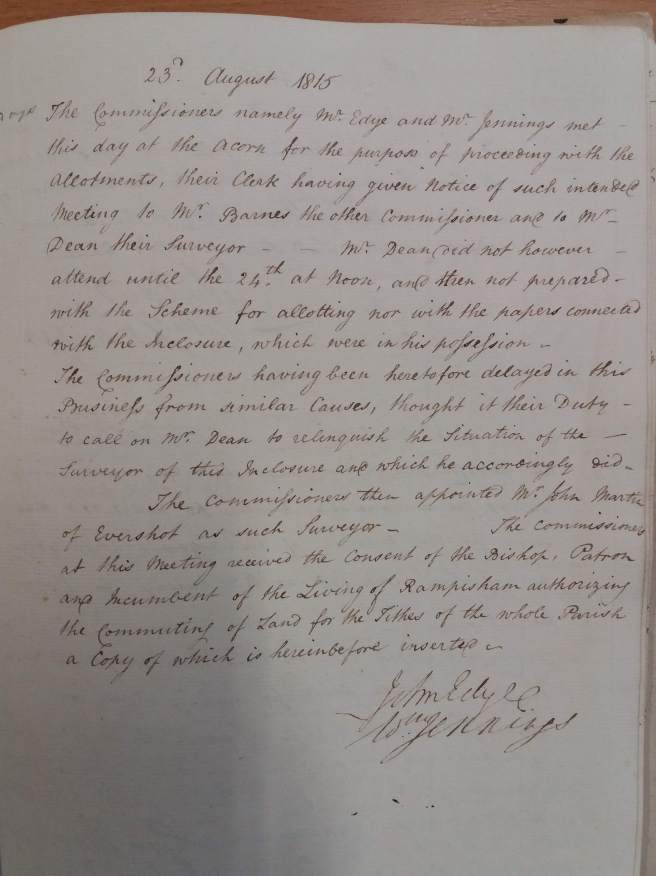 23d. August 1815
The Commissioners namely Mr. Edye and Mr. Jennings met -
this day at the Acorn for the purpose of proceeding with the
Allotments, their Clerk having given Notice of such intended
Meeting to Mr. Barnes the other Commissioner and to Mr. -
Dean their Surveyor - - Mr. Dean did not however -
attend until the 24th. at Noon, and then not prepared -
with the Scheme for allotting nor with the papers connected
with the Inclosure, which were in his possession -
The Commissioners having been heretofore delayed in this
Business from similar Causes, thought it their Duty -
to call on Mr. Dean to relinquish the Situation of the -
Surveyor of this Inclosure and which he accordingly did -
The Commissioners then appointed Mr. John Martin
of Evershot as such Surveyor - The Commissioners
at this Meeting received the Consent of the Bishop, Patron
and Incumbent of the Living of Rampisham authorizing
the Commuting of Land for the Tithes of the whole Parish
a Copy of which is hereinbefore inserted -
John Edye
Wm. Jennings